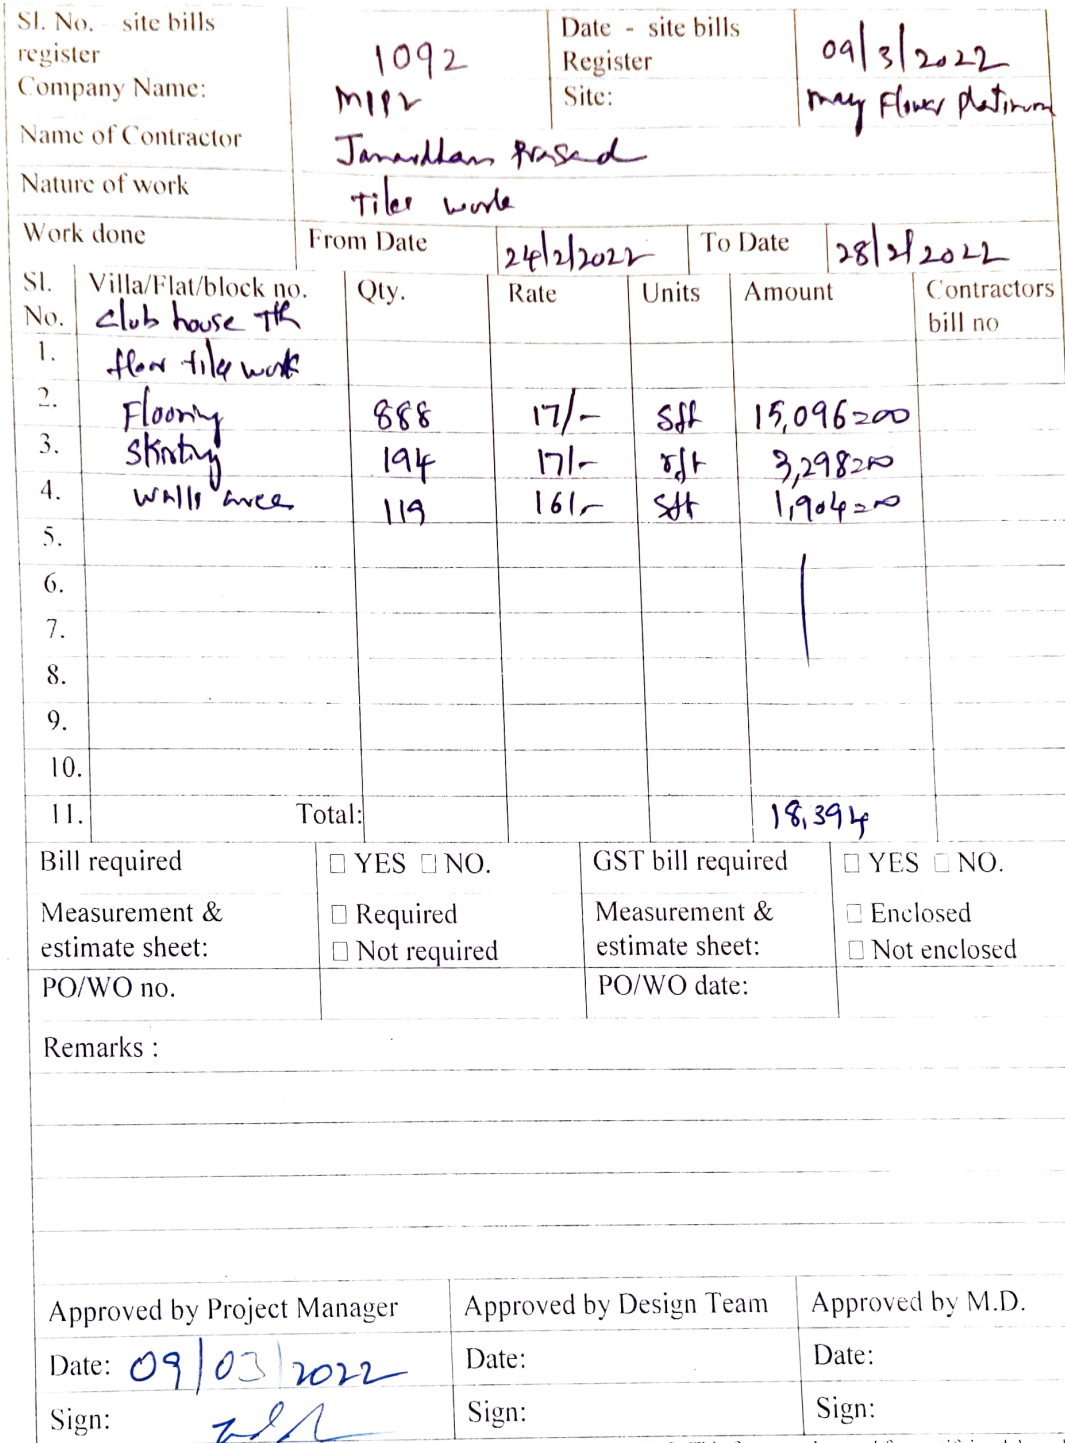 Sl. No. - site bills register 1092 Date - site bills Register 09/3/2022
Company Name: Site: May Flower Platinum
Name of Contractor Janardhan Prasad
Nature of work Tiles work
Work done From Date 24/2/2022 To Date 28/2/2022
Sl. No. Villa/Flat/block no. Qty. Rate Units Amount Contractors bill no
club house
1. floor tile work
2. Flooring 888 17/- sft 15,096=00
3. Skirting 194 17/- rft 3,298=00
4. walls area 119 16/- sft 1,904=00
5.
6.
7.
8.
9.
10.
11. Total: 18,394
Bill required ☐ YES ☐ NO. GST bill required ☐ YES ☐ NO.
Measurement & estimate sheet: ☐ Required ☐ Not required Measurement & estimate sheet: ☐ Enclosed ☐ Not enclosed
PO/WO no. PO/WO date:
Remarks :
Approved by Project Manager Approved by Design Team Approved by M.D.
Date: 09/03/2022 Date: Date:
Sign: Sign: Sign: